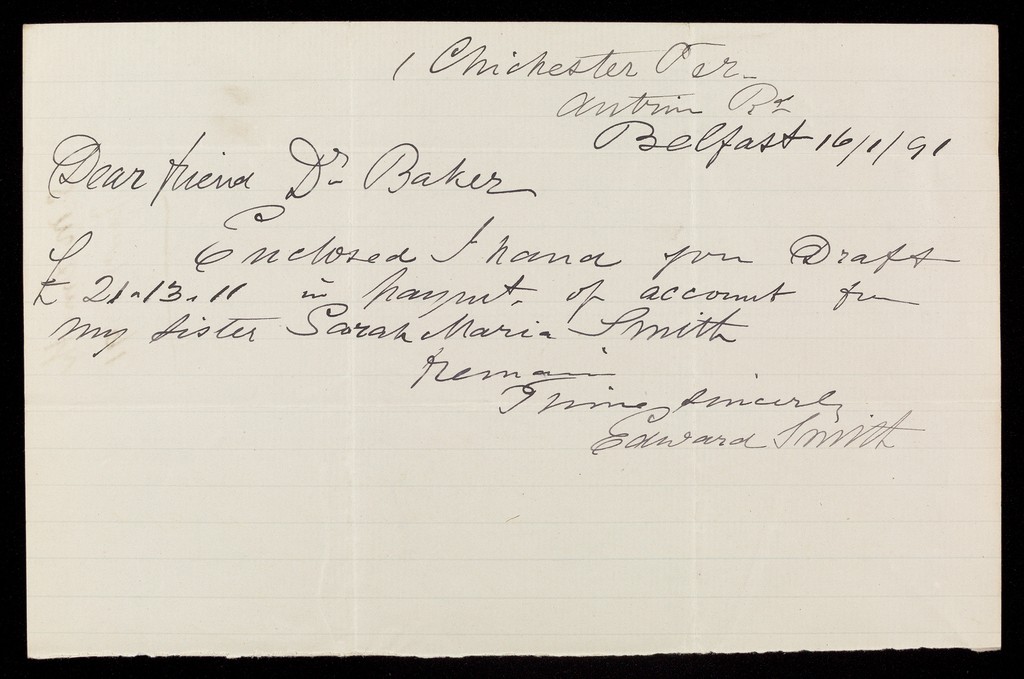 1 Chichester Ter.
Antrim Rd
Belfast 16/1/91
Dear friend Dr Baker
Enclosed I hand you Draft
£ 21.13.11 in paymt. of account for
my sister Sarah Maria Smith
remain
Thine sincerely
Edward Smith